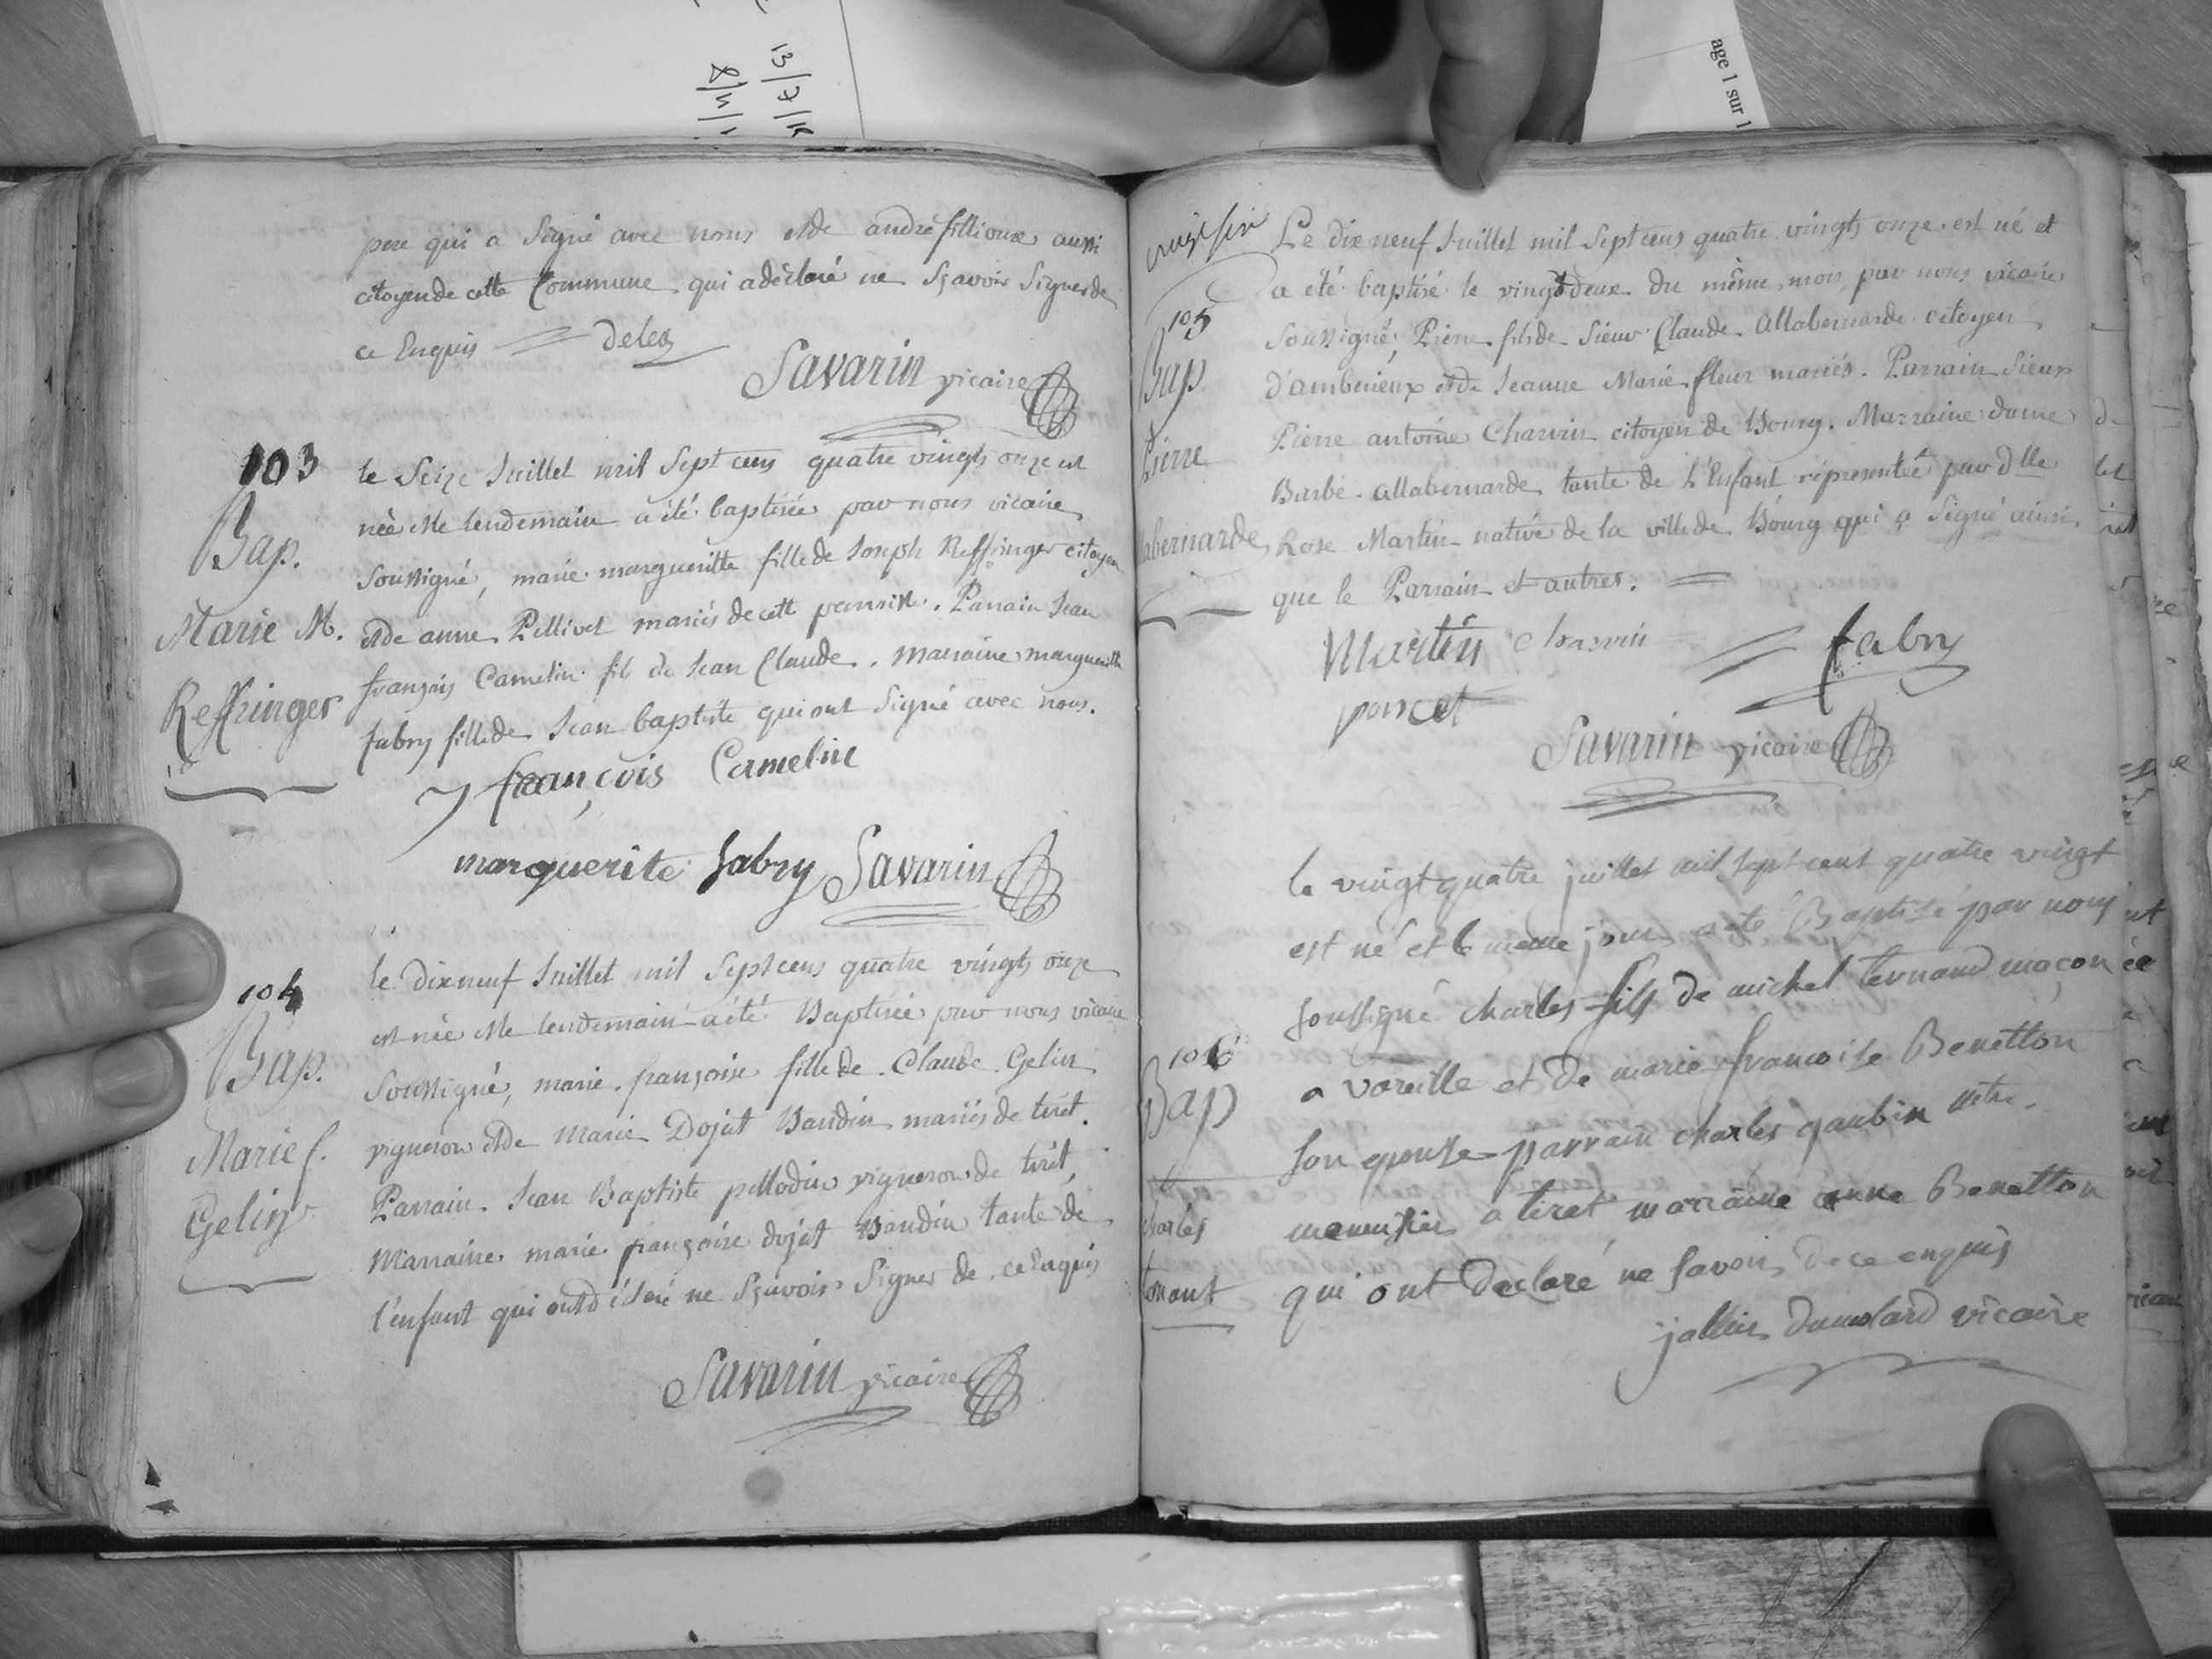 13/7/
8/11/1
age 1 sur 1
pere qui a Signé avec nous et de andré fillioux aussi
citoyen de cette Commune qui a déclaré ne Sçavoir Signer de
ce Enquis deles
Savarin vicaire
103
Bap.
Marie M.
Reffinger
le Seize Juillet mil Sept cens quatre vingts onze est
née et le lendemain a été baptisée par nous vicaire
soussigné, marie margueritte fille de Joseph Reffinger citoyen
et de anne Pellivet mariés de cett parroisse. Parrain Jean
françois Camelin fils de Jean Claude. Marraine margueritte
fabry fille de Jean baptiste qui ont Signé avec nous.
J françois Camelin
marguerite fabry Savarin
104
Bap.
Marie f.
Gelin
le dix neuf Juillet mil Sept cens quatre vingts onze
est née et le lendemain a été Baptisée par nous vicaire
Soussigné, marie françoise fille de Claude Gelin
vigneron et de Marie Dojat Baudin mariés de tiret.
Parrain Jean Baptiste pellodin vigneron de tirét,
Marraine marie françoise dojat Baudin tante de
l'enfant qui ont déclaré ne Sçavoir Signer de ce Enquis
Savarin vicaire
105
Bap
Pierre
abernarde
Le dix neuf Juillet mil Sept cens quatre vingts onze est né et
a été baptisé le vingt deux du même mois, par nous vicaire
Soussigné, Pierre fils de Sieur Claude Allabernarde citoyen
d'amberieux et de Jeanne Marie fleur mariés. Parrain Sieur
Pierre antoine Charvin citoyen de Bourg. Marraine dame
Barbe allabernarde tante de l'Enfant réprésentée par dlle
Rose Martin native de la ville de Bourg qui a Signé ainsi
que le Parrain et autres.
Martin Charvin fabry
poncet
Savarin vicaire
106
Bap
charles
le vingt quatre juillet mil sept cent quatre vingt
est né et le meme jour a été Baptisé par nous
soussigné charles fils de michel ternand maçon
a vareille et de marie francoise Benetton
son epouse parrain charles gaubin
menuisier a tiret marraine anne Benetton
qui ont declaré ne savoir de ce enquis
jallier dumolard vicaire